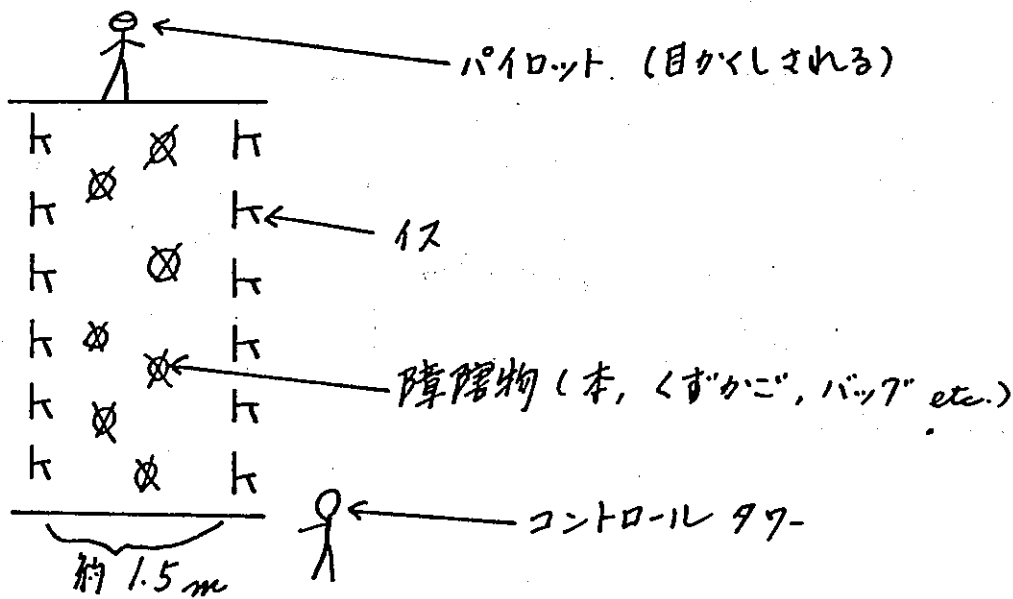 パイロット (目かくしされる)
イス
障害物 (本, くずかご, バッグ etc.)
コントロール タワー
約 1.5m